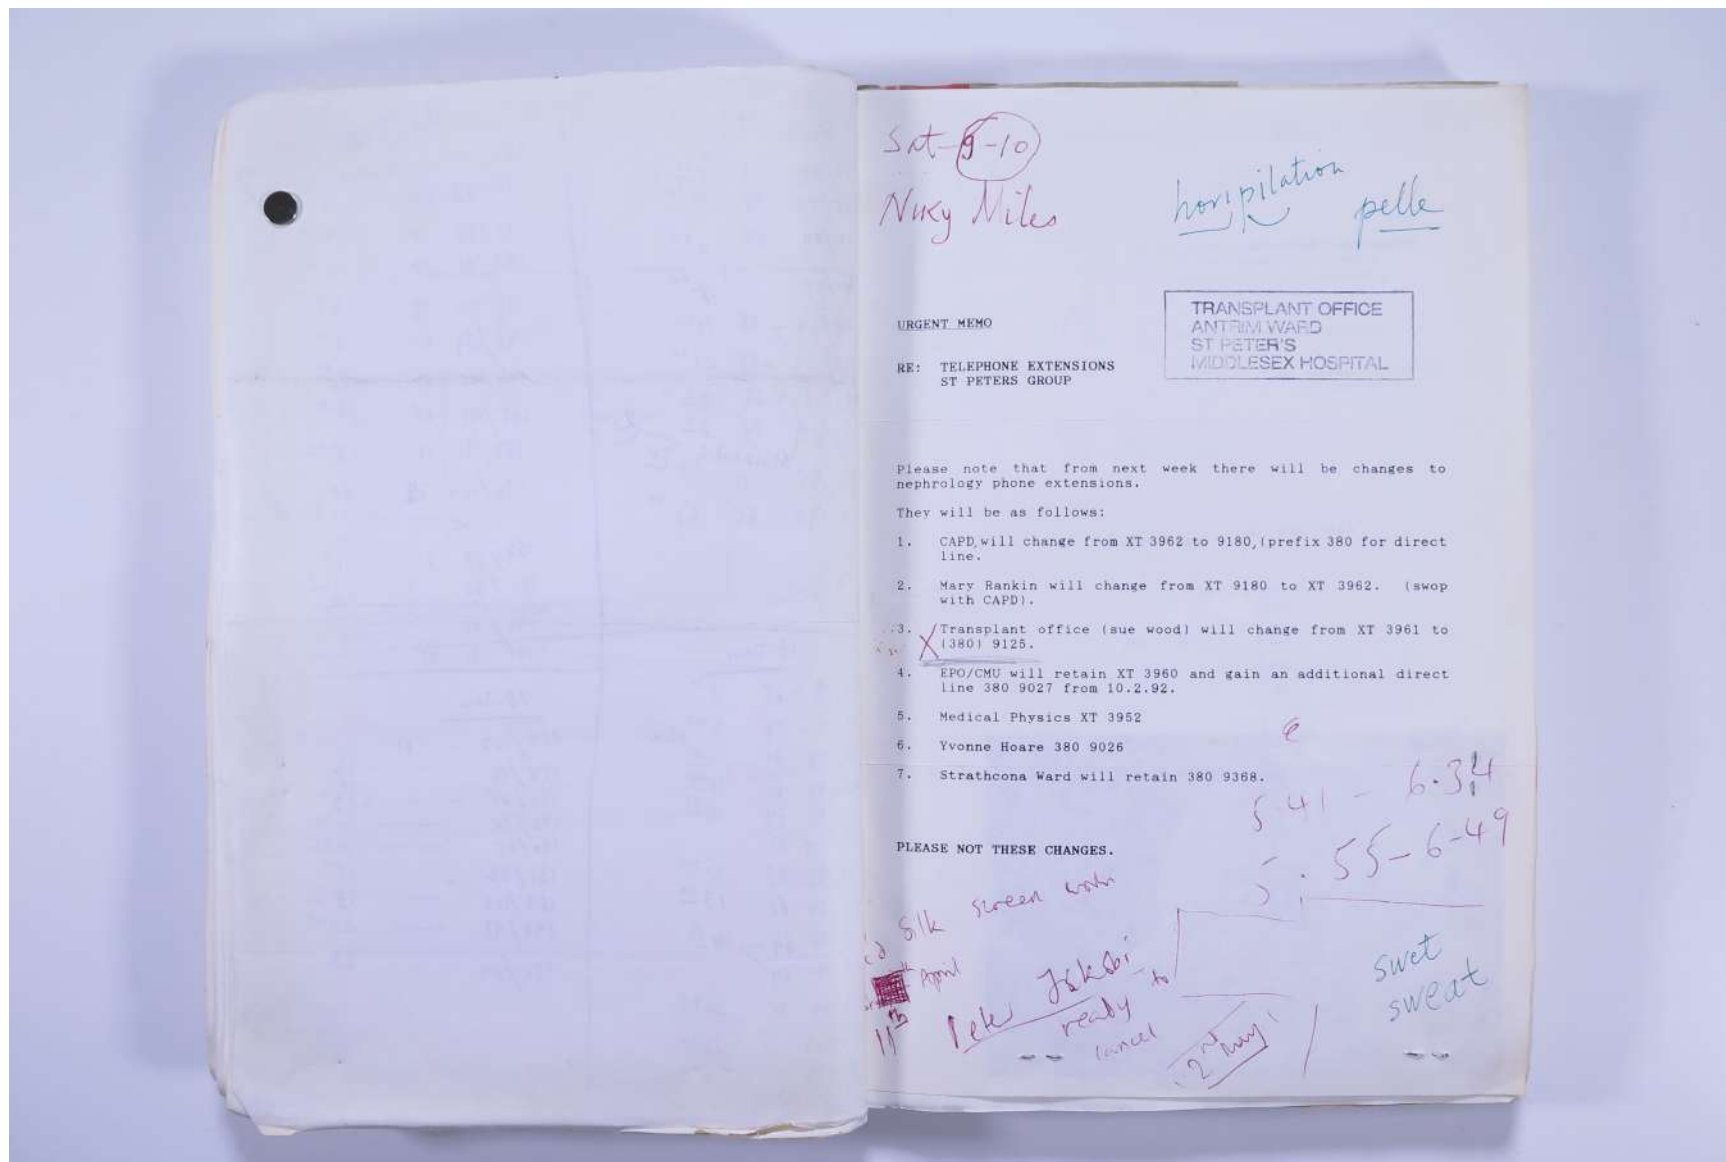 Sat-9-10
Nicky Miles
horripilation
pelle
TRANSPLANT OFFICE
ANTRIM WARD
ST PETER'S
MIDDLESEX HOSPITAL
URGENT MEMO
RE: TELEPHONE EXTENSIONS
ST PETERS GROUP
Please note that from next week there will be changes to
nephrology phone extensions.
They will be as follows:
1. CAPD, will change from XT 3962 to 9180, (prefix 380 for direct
line.
2. Mary Rankin will change from XT 9180 to XT 3962. (swop
with CAPD).
3. Transplant office (sue wood) will change from XT 3961 to
(380) 9125.
4. EPO/CMU will retain XT 3960 and gain an additional direct
line 380 9027 from 10.2.92.
5. Medical Physics XT 3952
6. Yvonne Hoare 380 9026
7. Strathcona Ward will retain 380 9368.
e
5.41 - 6.34
5.55-6-49
PLEASE NOT THESE CHANGES.
Silk screen
April
11th
Peter
ready to
cancel
2nd May
swet
sweat